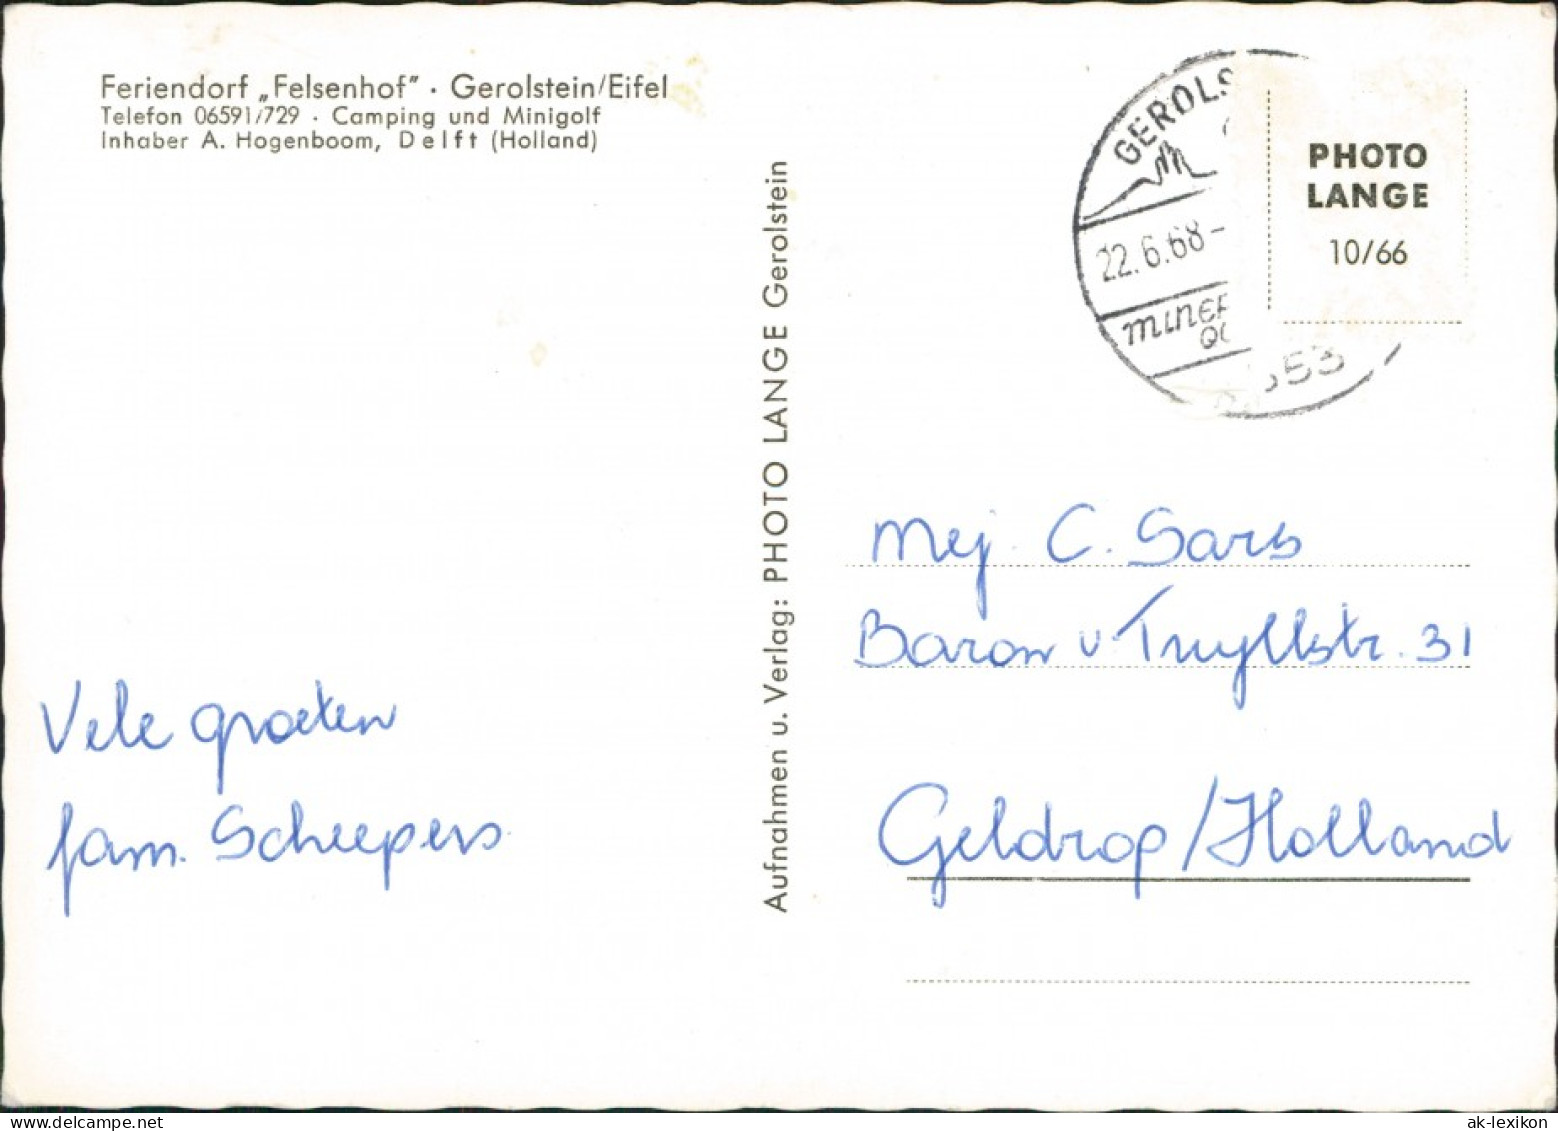 Feriendorf „Felsenhof" · Gerolstein/Eifel
Telefon 06591/729 · Camping und Minigolf
Inhaber A. Hogenboom, Delft (Holland)
GEROLS
22.6.68-
MINER
QU
553
PHOTO
LANGE
10/66
Aufnahmen u. Verlag: PHOTO LANGE Gerolstein
Vele groeten
fam. Scheepers
Mej. C. Sars
Baron v. Tuyllstr. 31
Geldrop/Holland
ak-lexikon.com